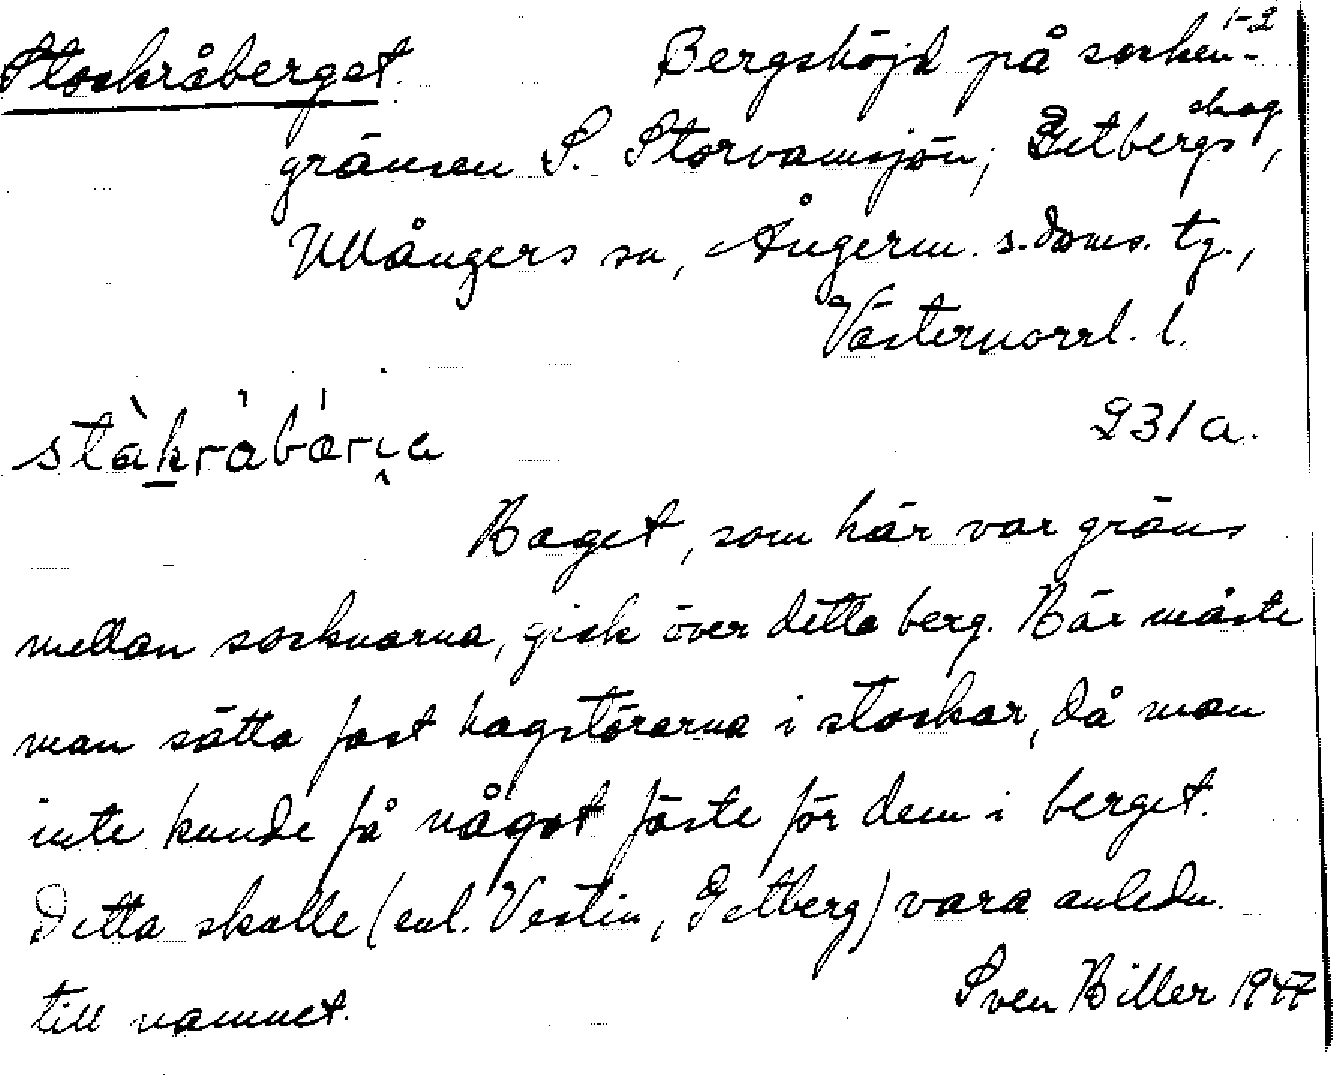 Stockråberget. Bergshöjd på socken- 1-2
gränsen S. Storvamsjön, Getbergs skog,
Ullångers sn, Ångerm. s. doms. tg.,
Västernorrl. l.
231a.
Haget, som här var gräns
mellan socknarna, gick över detta berg. Här måste
man sätta fast hagstörarna i stockar, då man
inte kunde få något fäste för dem i berget.
Detta skalle (enl. Vestin, Getberg) vara anledn.
till namnet. Sven Hiller 1947